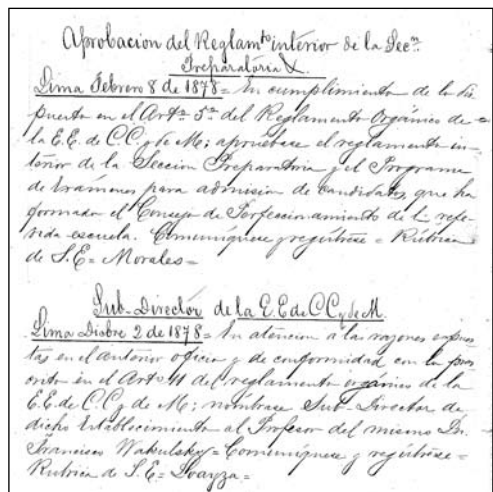 Aprobacion del Reglamto interior de la Secn.
Preparatória &.
Lima Febrero 8 de 1878 = En cumplimiento de lo dis
puesto en el Arto. 5o. del Reglamento Orgánico de
la E.E. de C.C. y de M; apruébase el reglamento in-
terior de la Seccion Preparatoria y el Programa
de Exámenes para admision de candidatos, que ha
formado el Consejo de Perfeccionamiento de la refe-
rida escuela. Comuníquese y regístrese = Rúbrica
de S.E = Morales =
Sub-Director de la E.E de C.C y de M.
Lima Disbre 2 de 1878 = En atencion a las razones expues
tas en el anterior oficio y de conformidad con lo pres
crito en el Arto 41 del reglamento orgánico de la
E.E. de C.C y de M; nómbrase Sub-Director de
dicho Establecimiento al Profesor del mismo Dn.
Francisco Wakulsky = Comuníquese y regístrese =
Rubrica de S.E = Loayza =